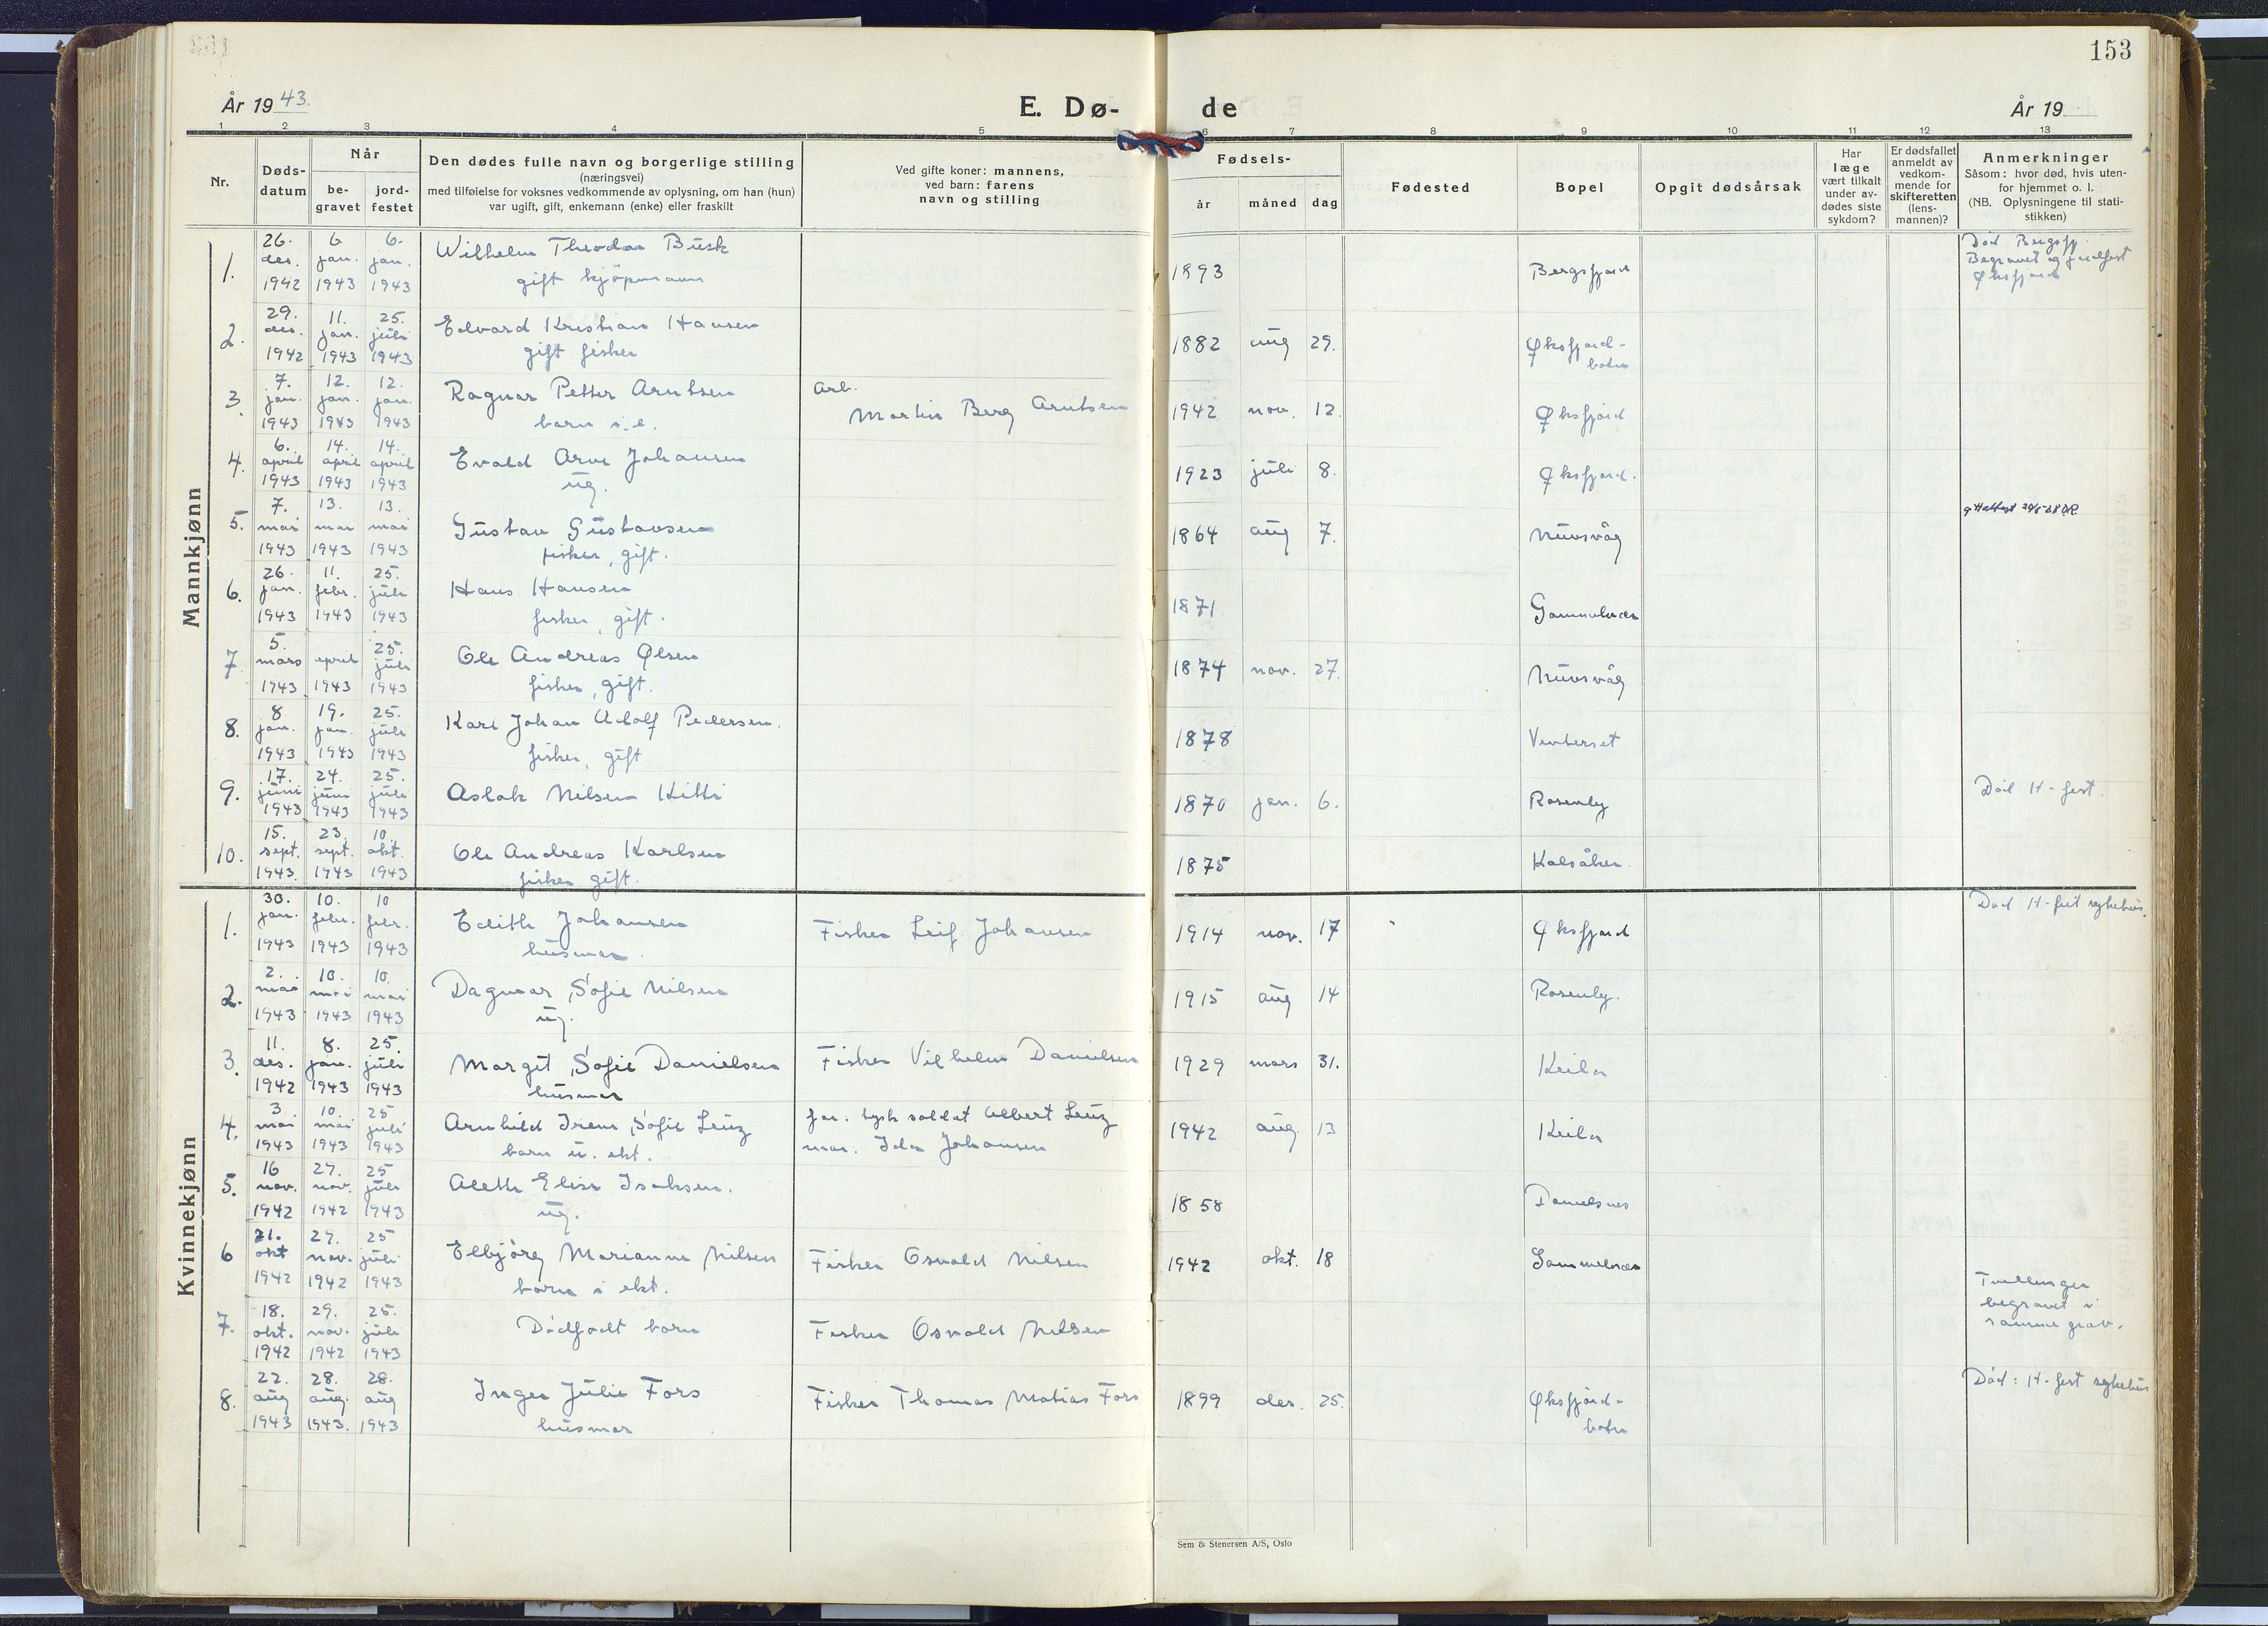 153
År 19 43.
E. Dø-
de
År 19
1 2 3 4 5 6 7 8 9 10 11 12 13
Nr.
Døds-
datum
Når
be-
gravet
jord-
festet
Den dødes fulle navn og borgerlige stilling
(næringsvei)
med tilføielse for voksnes vedkommende av oplysning, om han (hun)
var ugift, gift, enkemann (enke) eller fraskilt
Ved gifte koner: mannens,
ved barn: farens
navn og stilling
Fødsels-
år måned dag
Fødested
Bopel
Opgit dødsårsak
Har
læge
vært tilkalt
under av-
dødes siste
sykdom?
Er dødsfallet
anmeldt av
vedkom-
mende for
skifteretten
(lens-
mannen)?
Anmerkninger
Såsom: hvor død, hvis uten-
for hjemmet o. l.
(NB. Oplysningene til stati-
stikken)
Mannkjønn
1. 26. des. 1942 6 jan. 1943 6. jan. 1943 Wilhelm Theodor Busk 1893 Bergsfjord Død Bergsfj.
gift kjøpmann Begravet og jordfest
Øksfjord
2. 29. des. 1942 11. jan. 1943 25. juli 1943 Edvard Kristian Hansen 1882 aug 29. Øksfjord-
gift fisker botn
3. 7. jan. 1943 12. jan. 1943 12. jan. 1943 Ragnar Petter Arntsen Arb. Martin Berg Arntsen 1942 nov. 12. Øksfjord
barn i. e.
4. 6. april 1943 14. april 1943 14. april 1943 Evald Arne Johansen 1923 juli 8. Øksfjord.
ug.
5. 7. mai 1943 13. mai 1943 13. mai 1943 Gustav Gustavsen 1864 aug 7. Nuvsvåg
fisker, gift.
6. 26. jan. 1943 11. febr. 1943 25. juli 1943 Hans Hansen 1871 Gammelvær
fisker, gift.
7 5. mars 1943 april 1943 25. juli 1943 Ole Andreas Olsen 1874 nov. 27. Nuvsvåg
fisker, gift.
8. 8 jan. 1943 19. jan. 1943 25. juli 1943 Karl Johan Adolf Pedersen. 1878 Vinterset
fisker, gift
9. 17. juni 1943 24. juni 1943 25. juli 1943 Aslak Nilsen Kitti 1870 jan. 6. Rosenly Död H-fest.
10. 15. sept. 1943. 23. sept. 1943 10. okt. 1943 Ole Andreas Karlsen 1875 Kalsåker.
fisker gift.
Kvinnekjønn
1. 30. jan. 1943 10. febr. 1943 10 febr. 1943 Edith Johansen Fisker Leif Johansen 1914 nov. 17 Øksfjord Död H-fest sykehus.
husmor.
2. 2. mai 1943 10. mai 1943 10. mai 1943 Dagmar Sofie Nilsen 1915 aug 14 Rosenly.
ug.
3. 11. des. 1942 8. jan. 1943 25. juli 1943 Margit Sofie Danielsen Fisker Vilhelm Danielsen 1929 mars 31. Keila
husmor
4. 3. mai 1943 10. mai 1943 25 juli 1943 Arnhild Irene Sofie Lenz far. tysk soldat Albert Lenz 1942 aug. 13 Keila
barn u. ekt. mor. Ida Johansen
5. 16 nov. 1942 27. nov. 1942 25 juli 1943 Aleth Elise Isaksen. 1858 Danielsnes
ug.
6 21. okt 1942 29. nov. 1942 25 juli 1943 Elbjörg Marianne Nilsen Fisker Osvald Nilsen 1942 okt. 18 Gammelvær
barn i ekt.
7. 18. okt. 1942 29. nov. 1942 25. juli 1943 Dödfødt barn Fisker Osvald Nilsen Tvillinger
begravet i
samme grav.
8. 22. aug 1943 28. aug. 1943. 28. aug 1943 Inga Julie Fors Fisker Thomas Matias Fors 1899 des. 25. Øksfjord- Död: H-fest sykehus
husmor botn
Sem & Stenersen A/S, Oslo